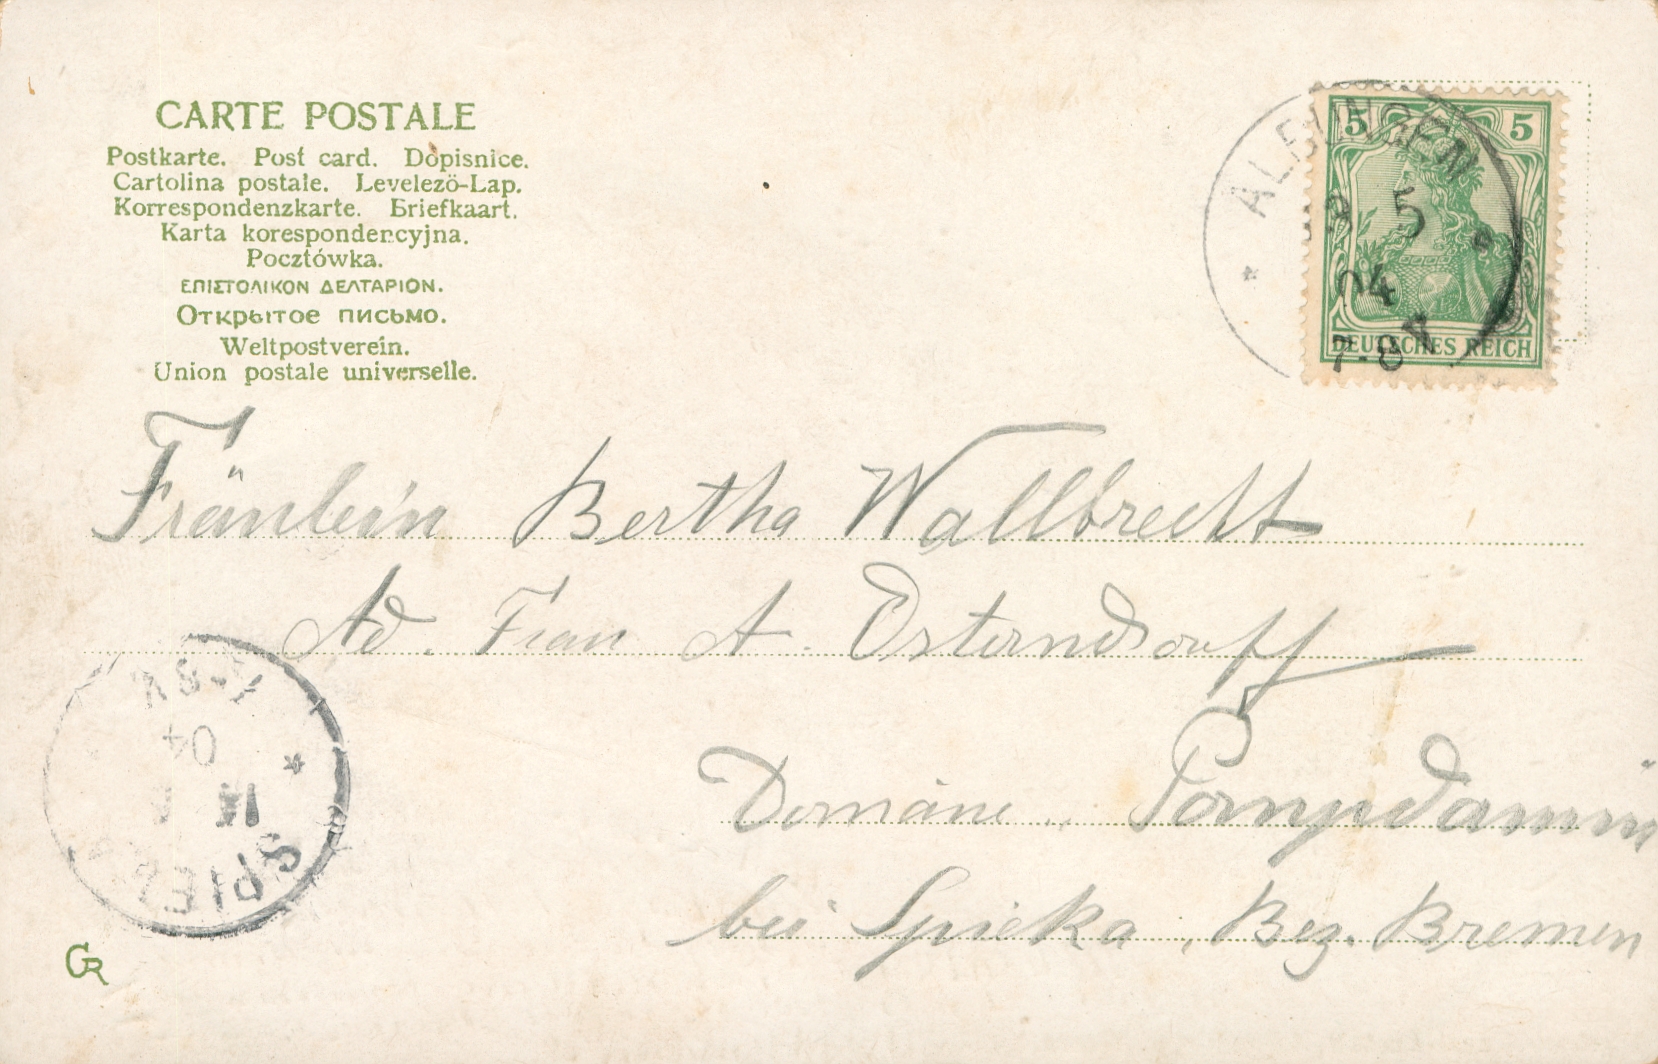 CARTE POSTALE
Postkarte. Post card. Dopisnice.
Cartolina postale. Levelezö-Lap.
Korrespondenzkarte. Briefkaart.
Karta korespondencyjna.
Pocztówka.
ΕΠΙΣΤΟΛΙΚΟΝ ΔΕΛΤΑΡΙΟΝ.
Открытое письмо.
Weltpostverein.
Union postale universelle.
5 5
DEUTSCHES REICH
5
04
7-8V
Fräulein Bertha Wallbrecht
Ad. Frau A. Osterndorff
Domäne
bei Spieka, Bez. Bremen
7-8V
04
SPIEKA
GR